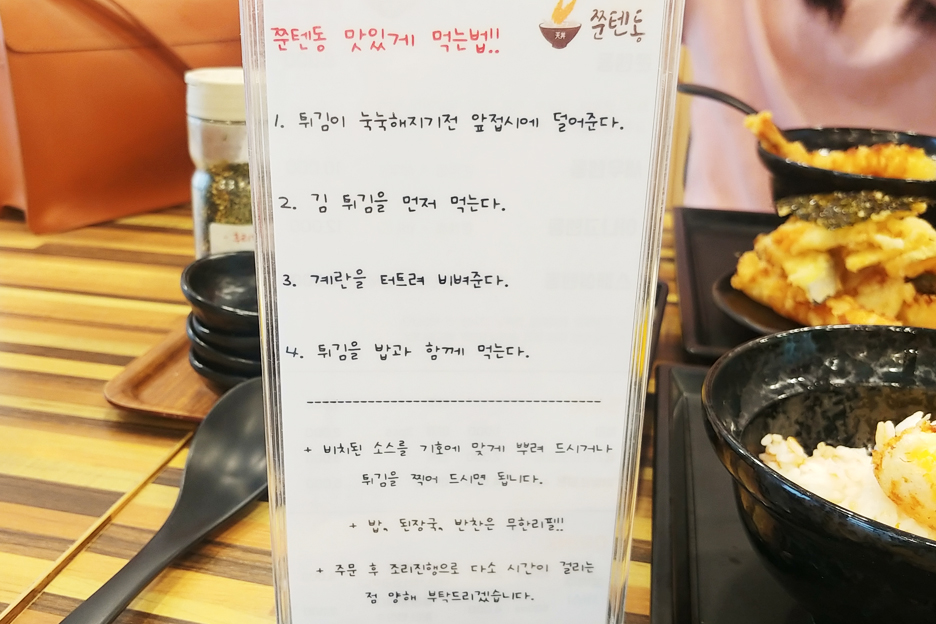 쭌텐동 맛있게 먹는법!!
쭌텐동
1. 튀김이 눅눅해지기전 앞접시에 덜어준다.
2. 김 튀김을 먼저 먹는다.
3. 계란을 터트려 비벼준다.
4. 튀김을 밥과 함께 먹는다.
+ 비치된 소스를 기호에 맞게 뿌려 드시거나
튀김을 찍어 드시면 됩니다.
+ 밥, 된장국, 반찬은 무한리필!!
+ 주문 후 조리진행으로 다소 시간이 걸리는
점 양해 부탁드리겠습니다.